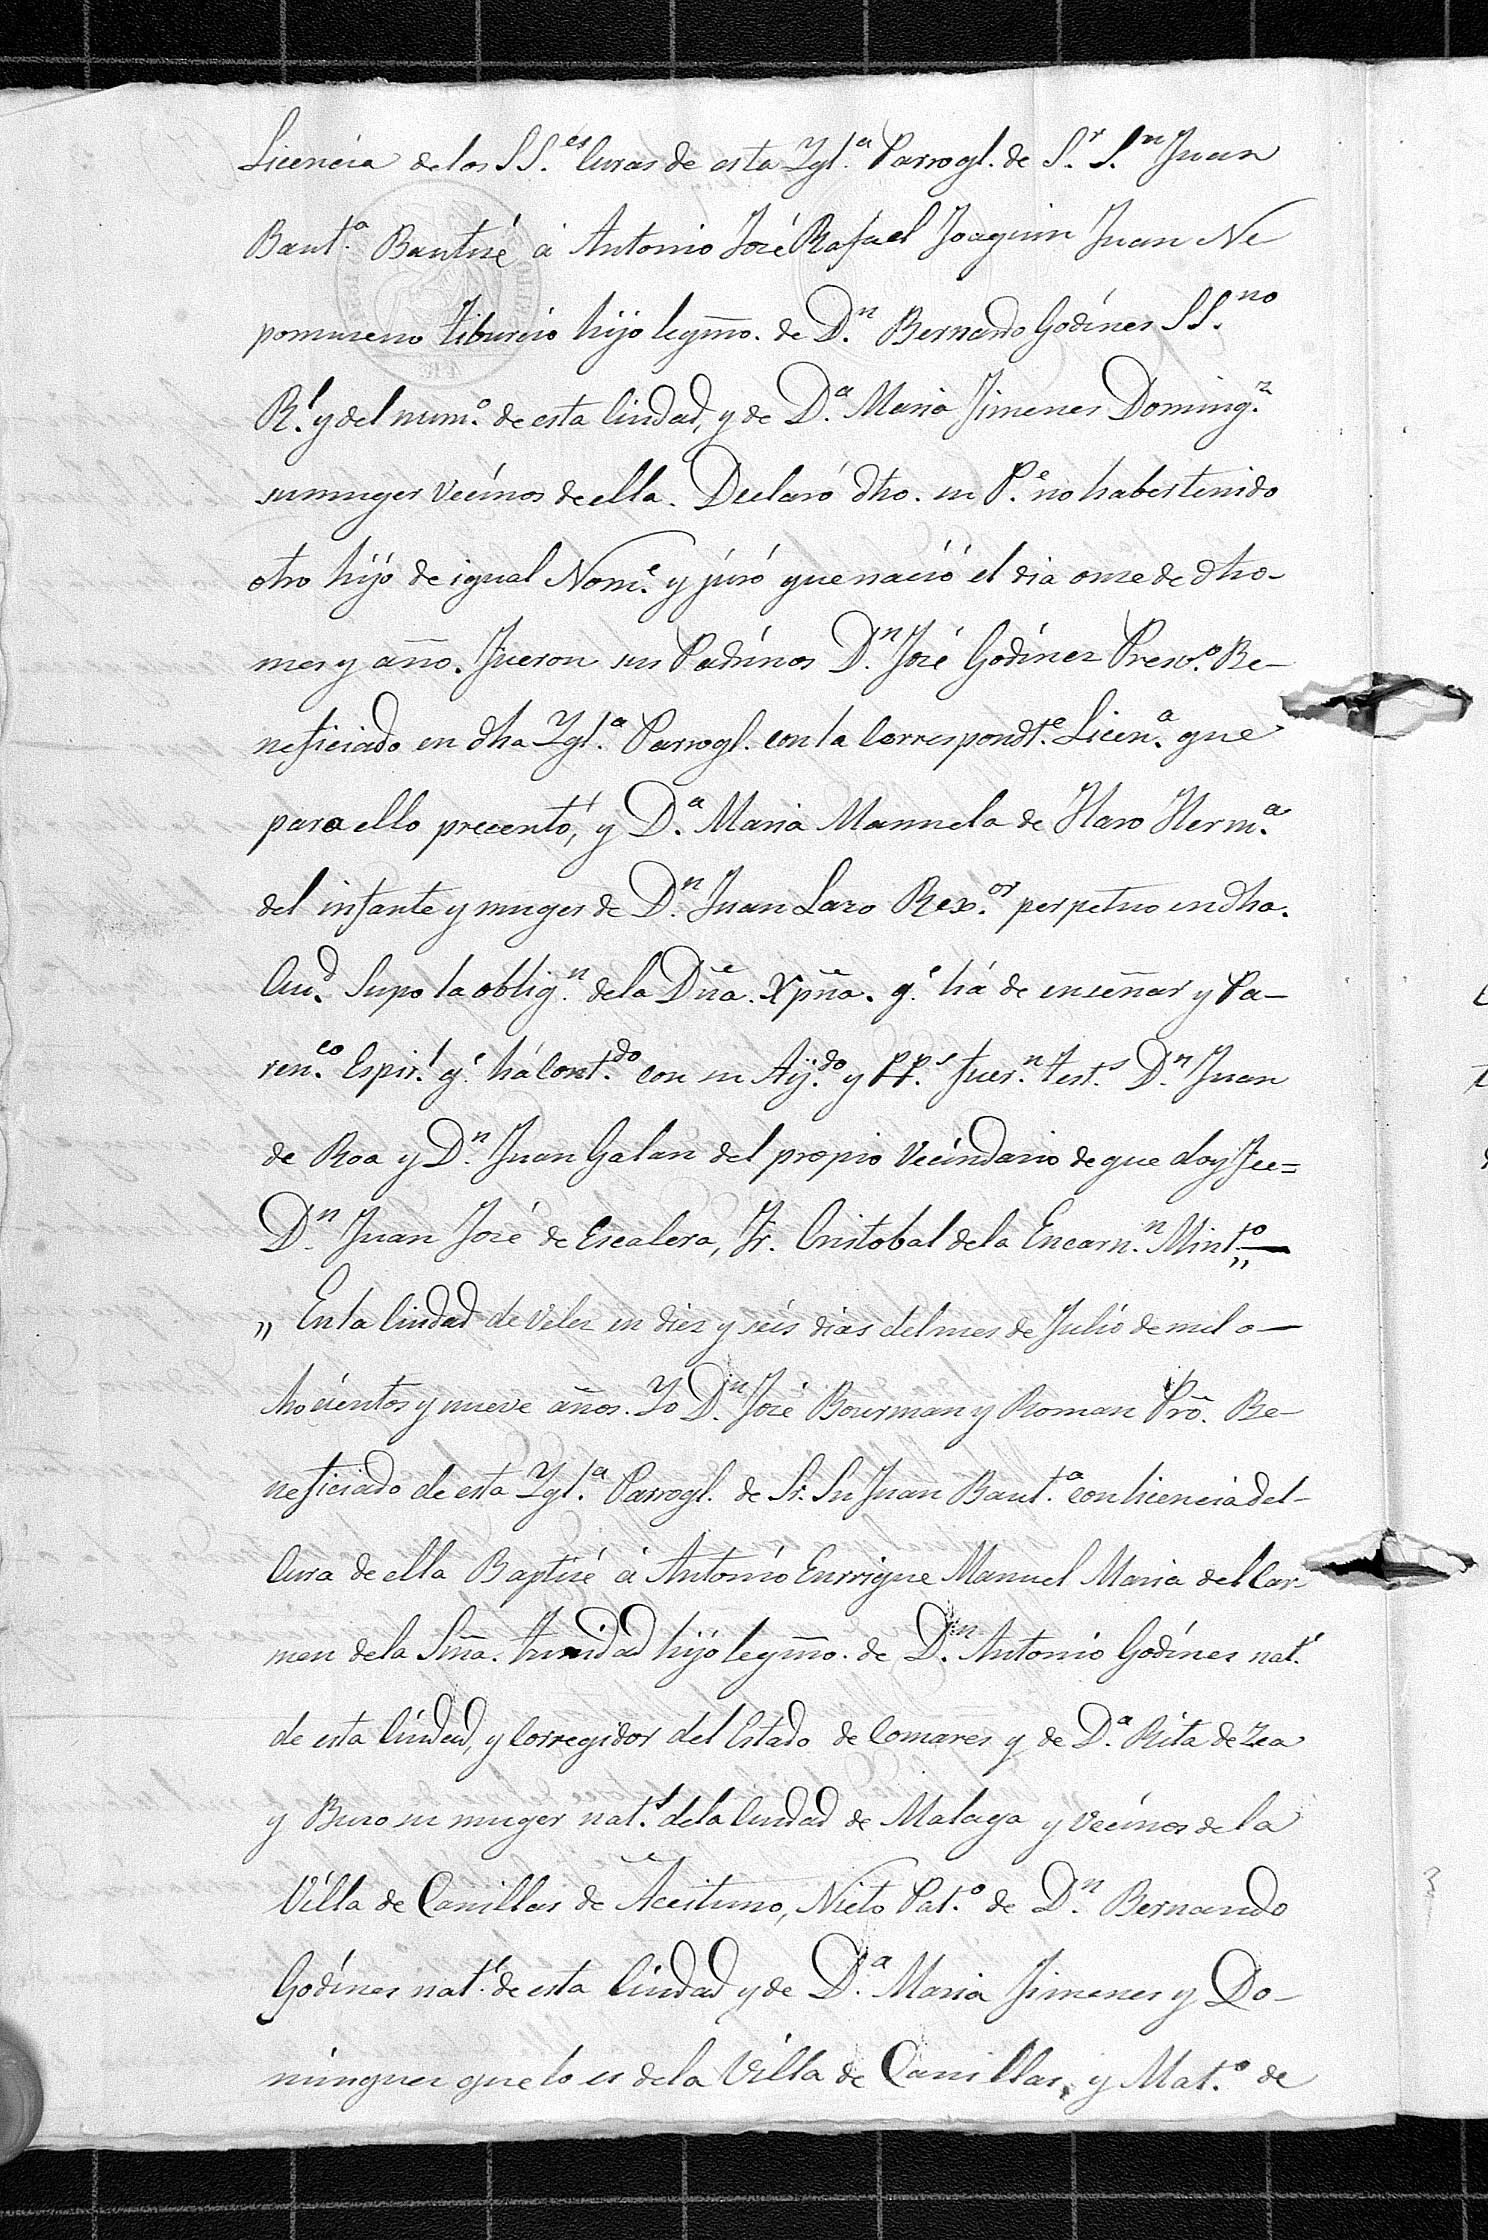 Licencia de los SS.es Curas de esta Ygl.a Parrogl. de S.r S.n Juan
Baut.a Bautisé á Antonio José Rafael Joaquin Juan Ne
pomuseno Tiburcio hijo legmo. de D.n Bernardo Godínes SS.no
R.l y del num.o de esta Ciudad, y de D.a Maria Jimenes Doming.z
su muger Vecinos de ella. Declaró dho. su P.e no haber tenido
otro hijo de igual Nom.e y juró que nació el dia onse de dho-
mes y año. Fueron sus Padrinos D.n José Godínez Presv.o Be-
neficiado en dha Ygl.a Parrogl. con la Correspondt.e Licen.a que
para ello precentó, y D.a Maria Manuela de Haro Herm.a
del infante y muger de D.n Juan Laso Rex.or perpetuo en dha.
Ciu.d Supo la oblig.n de la Dña. Xpña. q.e há de enseñar y Pa-
ren.co Espir.l q.e há Cont.do con su Aij.do y PP.s fuer.n test.s D.n Juan
de Roa y D.n Juan Galan del propio Vecindario de que doy Fee=
D.n Juan José de Escalera, Fr. Cristobal de la Encarn.n Mint.o „—
„ En la Ciudad de Velez en diez y seis dias del mes de Julio de mil o—
chocientos y nueve años. Yo D.n José Bourman y Roman Pro. Be-
neficiado de esta Ygl.a Parrogl. de Sr. Sn Juan Baut.a con licencia del-
Cura de ella Baptisé á Antonio Enrrique Manuel Maria del Car-
men de la Sma. Trinidad hijo legmo. de D.n Antonio Godínes nat.l
de esta Ciudad, y Corregidor del Estado de Comares y de D.a Rita de Zea
y Buro su muger nat.l de la Ciudad de Malaga y Vecinos de la
Villa de Canillas de Aceituno, Nieto Pat.o de D.n Bernardo
Godínes nat.l de esta Ciudad y de D.a Maria Jimenes y Do-
minguez que lo es de la Villa de Canillas, y Mat.o de